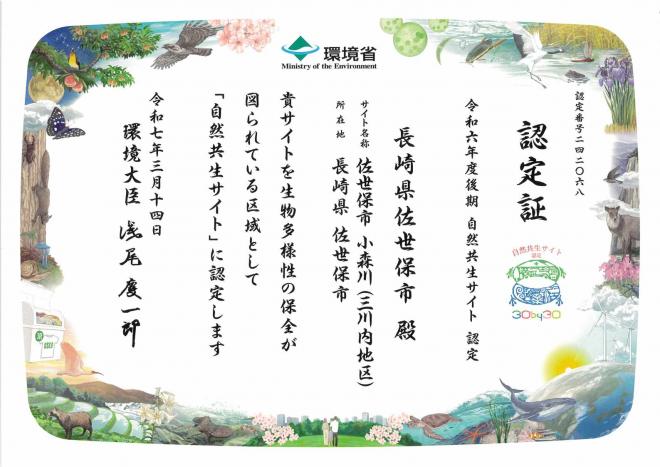 環境省
Ministry of the Environment
認定番号二四二〇六八
認定証
自然共生サイト
認定
30by30
令和六年度後期 自然共生サイト 認定
長崎県佐世保市 殿
サイト名称 佐世保市 小森川(三川内地区)
所在地 長崎県 佐世保市
貴サイトを生物多様性の保全が
図られている区域として
「自然共生サイト」に認定します
令和七年三月十四日
環境大臣 浅尾 慶一郎